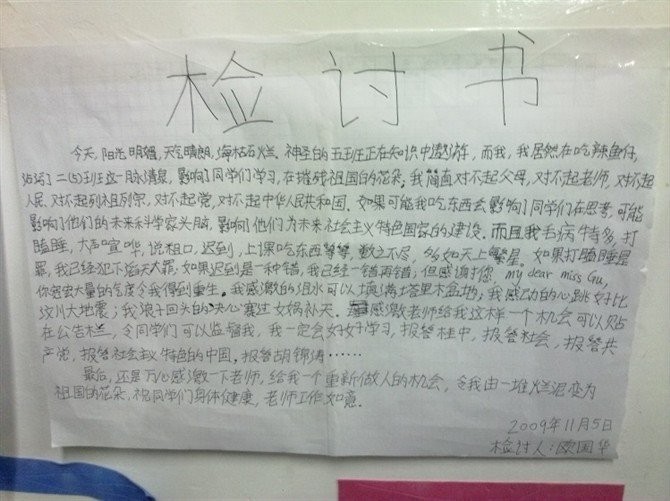 检讨书
今天,阳光明媚,天气晴朗,海枯石烂.神圣的五班正在知识中遨游,而我,我居然在吃辣鱼仔,
沾污了二(5)班这一脉清泉,影响了同学们学习,在摧残祖国的花朵,我简直对不起父母,对不起老师,对不起
人民,对不起列祖列宗,对不起党,对不起中华人民共和国,如果可能我吃东西会影响了同学们在思考,可能
影响了他们的未来科学家头脑,影响了他们为未来社会主义特色国家的建设.而且我毛病特多,打
瞌睡,大声喧哗,说粗口,迟到,上课吃东西等等,数之不尽,多如天上繁星.如果打瞌睡是
罪,我已经犯下滔天大罪,如果迟到是一种错,我已经一错再错;但感谢您, my dear miss Gu,
你宽宏大量的气度令我得到重生.我感激的泪水可以填满塔里木盆地;我感动的心跳好比
汶川大地震;我浪子回头的决心赛过女娲补天.感激老师给我这样一个机会可以贴
在公告栏,令同学们可以监督我,我一定会好好学习,报答桂中,报答社会,报答共
产党,报答社会主义特色的中国.报答胡锦涛……
最后,还是万心感激一下老师,给我一个重新做人的机会,令我由一堆烂泥变为
祖国的花朵,祝同学们身体健康,老师工作如意.
2009年11月5日
检讨人:欧国华